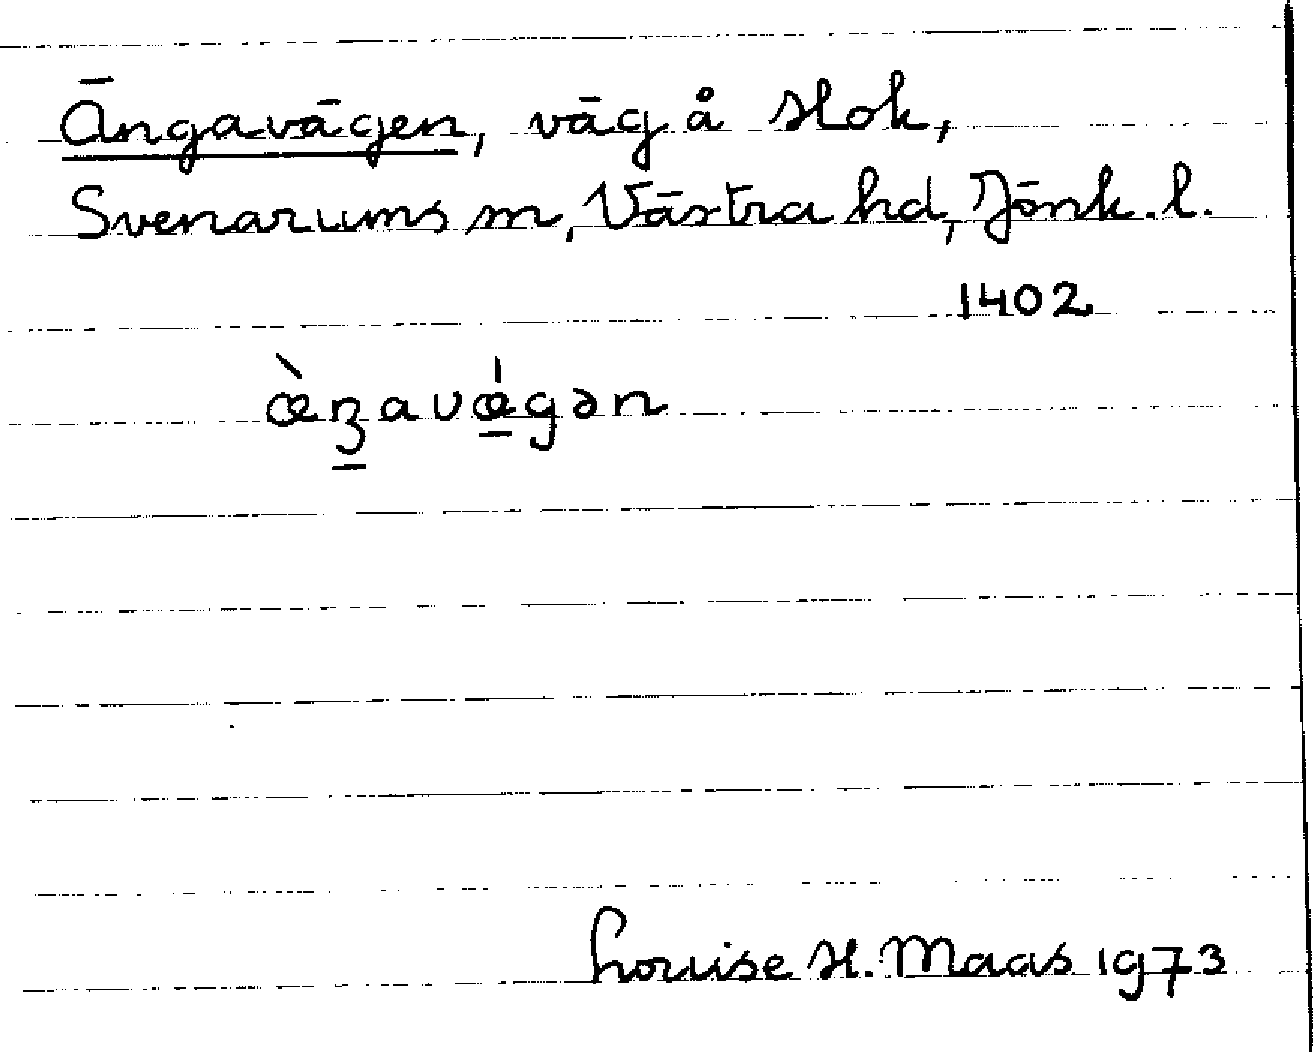 Ängavägen, väg å Hok,
Svenarums sn, Västra hd, Jönk. l.
1402
æ̀ŋ̱avǽ̱gən
Louise H. Maas 1973